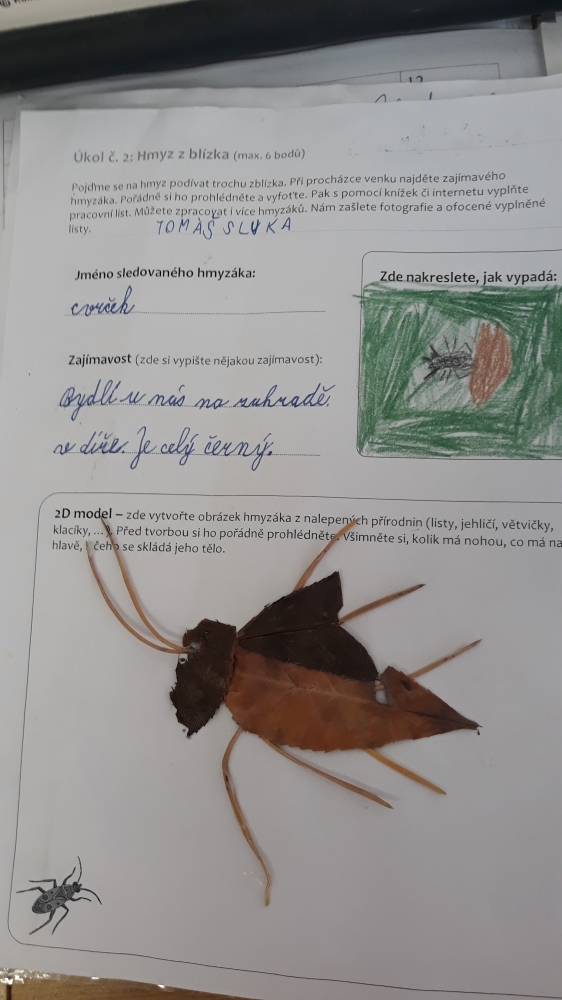 Úkol č. 2: Hmyz z blízka (max. 6 bodů)
Pojďme se na hmyz podívat trochu zblízka. Při procházce venku najděte zajímavého
hmyzáka. Pořádně si ho prohlédněte a vyfoťte. Pak s pomocí knížek či internetu vyplňte
pracovní list. Můžete zpracovat i více hmyzáků. Nám zašlete fotografie a ofocené vyplněné
listy.
TOMÁŠ SLUKA
Jméno sledovaného hmyzáka:
cvrček
Zde nakreslete, jak vypadá:
Zajímavost (zde si vypište nějakou zajímavost):
Bydlí u nás na zahradě.
v díře. Je celý černý.
2D model – zde vytvořte obrázek hmyzáka z nalepených přírodnin (listy, jehličí, větvičky,
klacíky, ...). Před tvorbou si ho pořádně prohlédněte. Všimněte si, kolik má nohou, co má na
hlavě, z čeho se skládá jeho tělo.